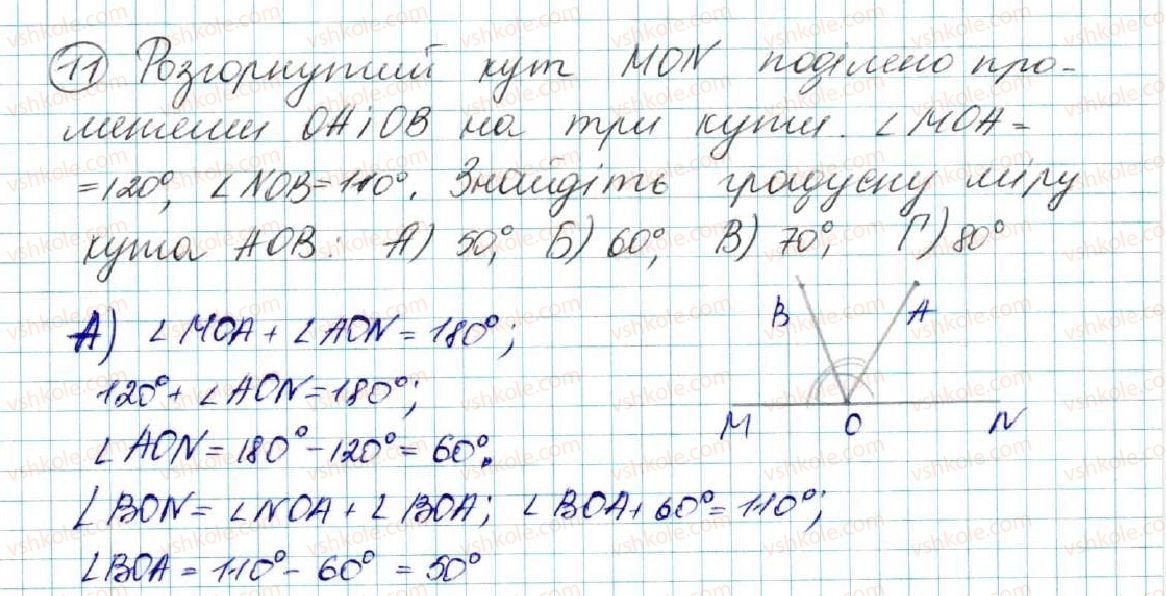 11 Розгорнутий кут MON поділено про-
менями OA і OB на три кути. ∠MOA =
= 120°, ∠NOB = 110°. Знайдіть градусну міру
кута AOB: А) 50°, Б) 60°, В) 70°, Г) 80°
А) ∠MOA + ∠AON = 180°;
120° + ∠AON = 180°;
∠AON = 180° - 120° = 60°.
∠BON = ∠NOA + ∠BOA; ∠BOA + 60° = 110°;
∠BOA = 110° - 60° = 50°
B A
M O N
vshkole.com